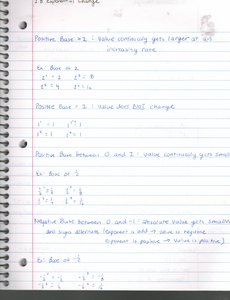 1.8 Exponential Change
Positive Base > 1 : Value continously gets larger at an
increasing rate
Ex: Base of 2
2¹ = 2 2³ = 8
2² = 4 2⁴ = 16
Positive Base = 1 : Value does NOT change
1¹ = 1 1³ = 1
1² = 1 1⁴ = 1
Positive Base between 0 and 1 : Value continously gets
Ex: Base of ½
Negative Base between 0 and -1 : absolute value gets
and signs alternate (exponent is odd → value is negative
exponent is positive → value is positive)
Ex: Base of -½